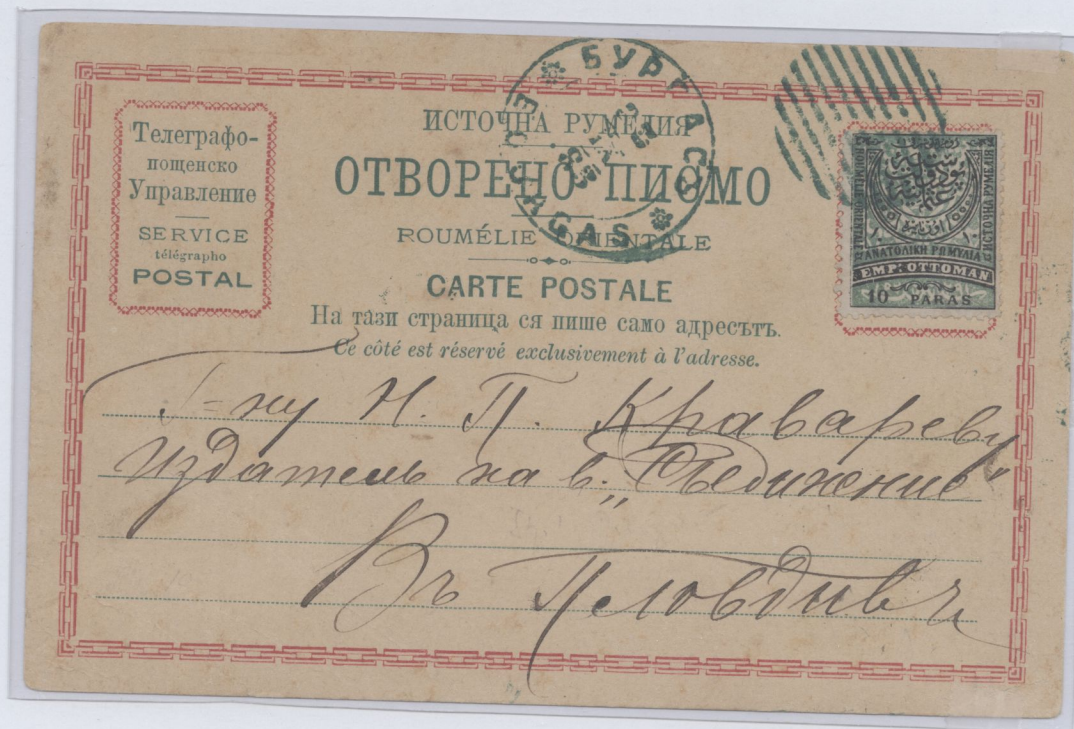 Телеграфо-
пощенско
Управление
SERVICE
télégrapho
POSTAL
БУРГАСЪ
ИСТОЧНА РУМЕЛИЯ
ОТВОРЕНО ПИСМО
ROUMÉLIE ORIENTALE
CARTE POSTALE
На тази страница ся пише само адресътъ.
Ce côté est réservé exclusivement à l'adresse.
ИСТОЧНА РУМЕЛІЯ
ΑΝΑΤΟΛΙΚΗ ΡΩΜΥΛΙΑ
EMP: OTTOMAN
10 PARAS
Г=ну Н. П. Краварeву
издатель на в. „Съединение"
Въ Пловдивъ